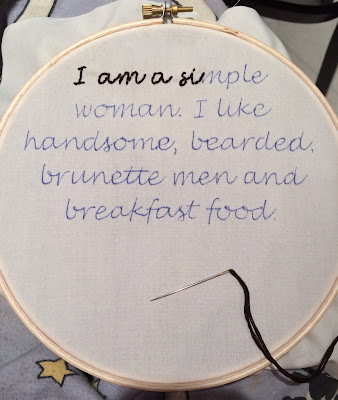 I am a simple
woman. I like
handsome, bearded,
brunette men and
breakfast food.